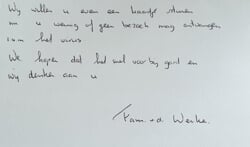 Wij willen u even een kaartje sturen
nu u weinig of geen bezoek mag ontvangen
i.v.m het virus
We hopen dat het snel voorbij gaat en
wij denken aan u
Fam. v.d. Werke.